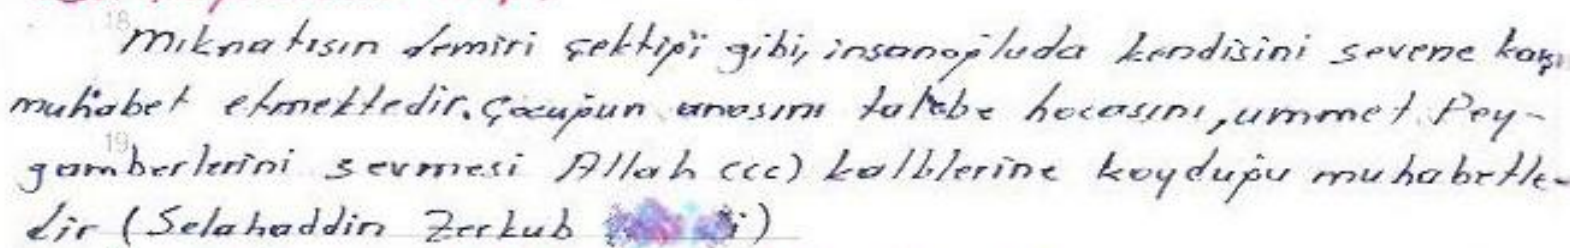 18
Mıknatısın demiri çektiği gibi, insanoğluda kendisini sevene karşı
muhabet etmektedir. Çocuğun anasını talebe hocasını, ummet Pey-
19
gamberlerini sevmesi Allah (cc) kalblerine koyduğu muhabetle-
dir (Selahaddin Zerkub